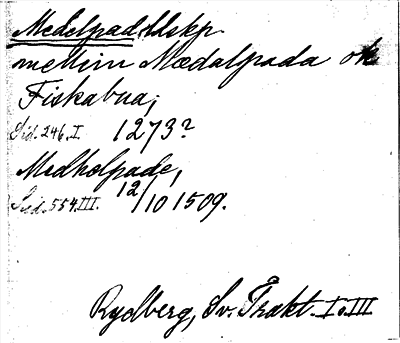 Medelpad llskp.
mellim Mædalpada ok
Fiskabua;
Sid. 246. I. 1273?
Medholpade,
Sid. 554. III. 12/10 1509.
Rydberg, Sv. Trakt. I o. III